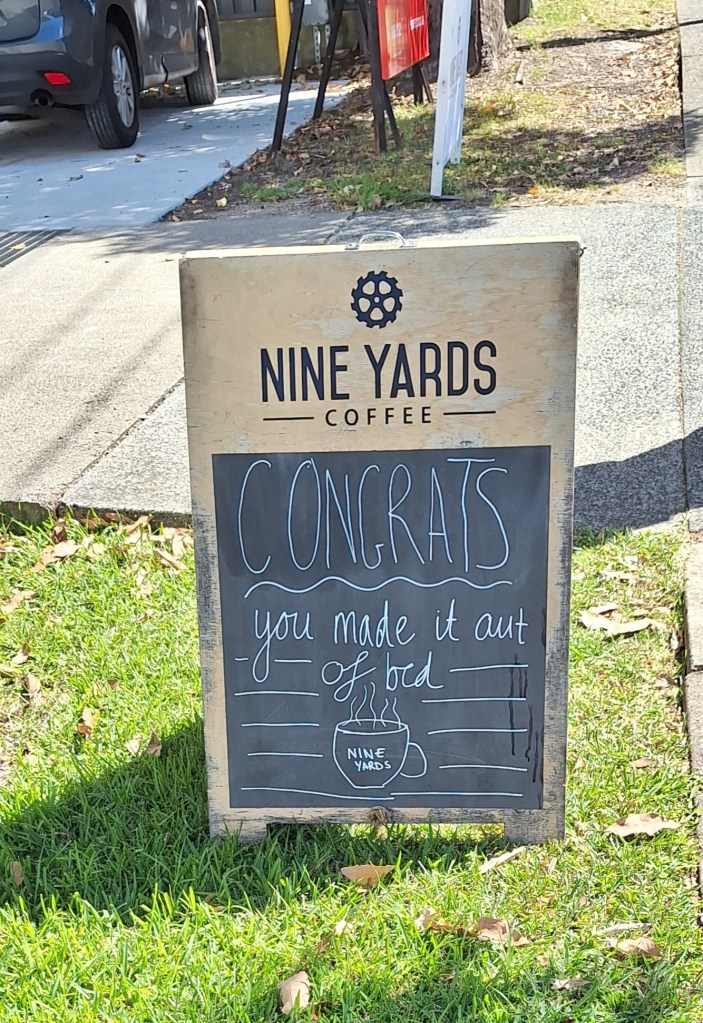 NINE YARDS
COFFEE
CONGRATS
you made it out
of bed
NINE
YARDS